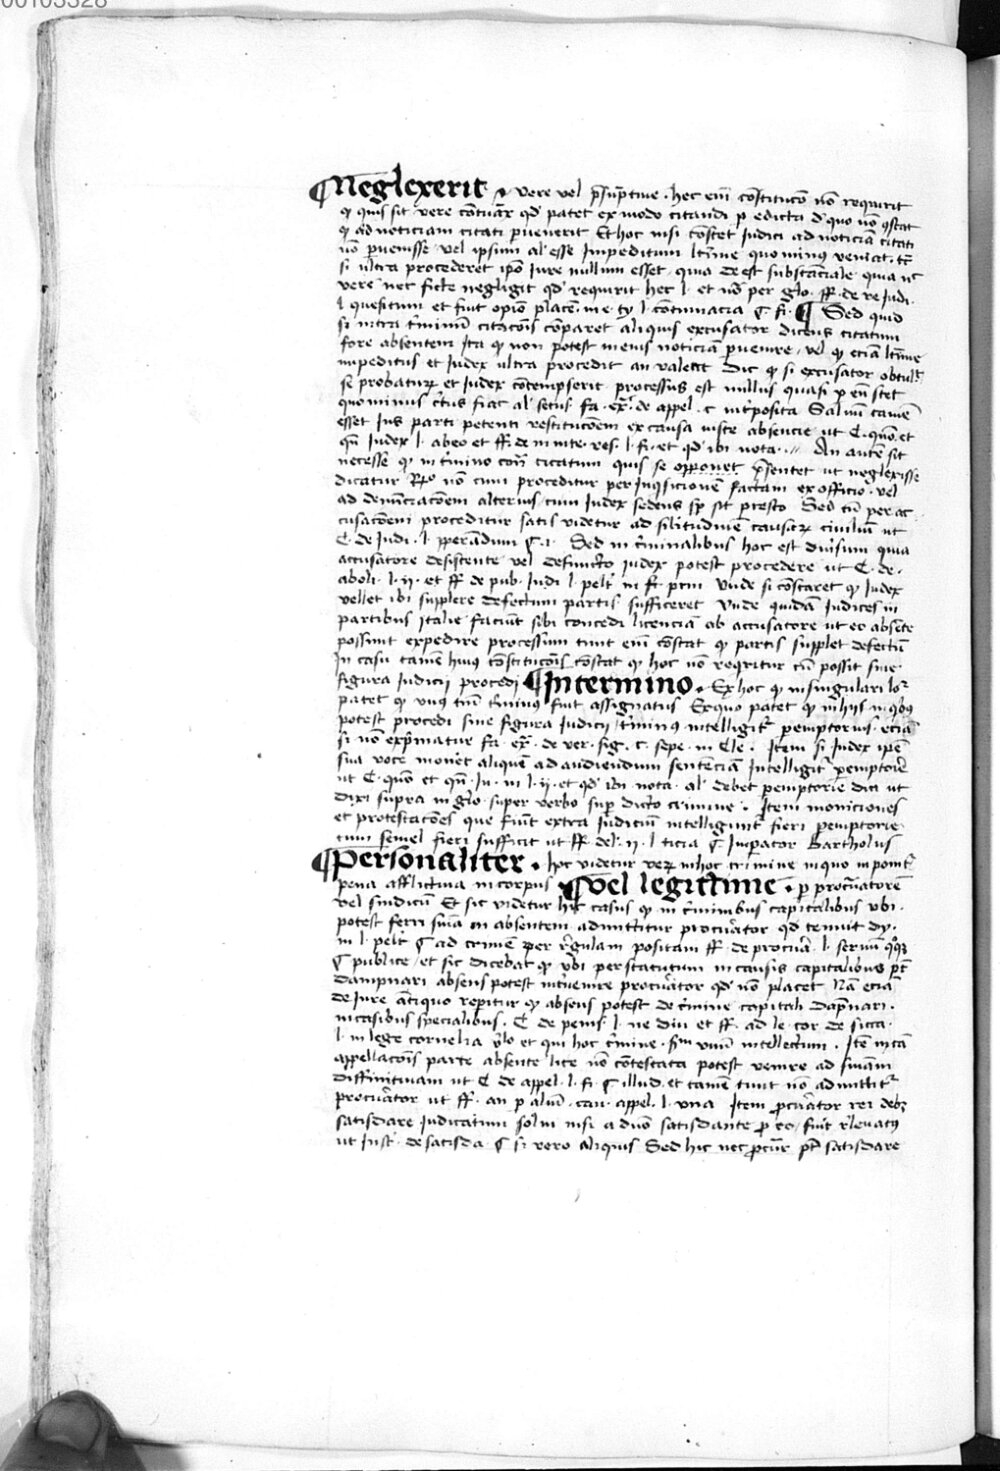 00103328
¶ Neglexerit · vere vel p̄sūptiue · hec em̄ cōstitucō nō requirit
qꝫ quis sit vere cōtumax qd' patet ex modo citandi p edicta d' quo nō ꝯstat
qꝫ ad noticiam citati puenerit Et hoc nisi cōstet Iudici ad noticiā citati
nō puenisse vel ipsum al' esse Impeditum ltīme quo minꝰ veniat · tūc
si ultra procederet ipō Iure nullum esset quia deest substāciale quia nc
vere nec ficte negligit qd' requirit hec l · et nō per glo · ff · de re Iudi ·
l quesitum et fuit opio placē · in c · ty l · cōtumacia § fi · ¶ Sed quid
si intra t'minū citacōis cōparet aliquis excusator dicens citatum
fore absentem Ita qꝫ non potest in eius noticiā puenire vel qꝫ eciā ltīme
impeditus et Iudex ultra procedit an valeat Dic qꝫ si excusator obtulit
se probaturꝫ et Iudex cōtempserit processus est nullus quasi p eū stet
quominus c'tus fiat al' secus · fa · ex' · de appel · c int'posita Saluū tamē
esset Ius parti petenti restitucōem ex causa iuste absencie ut C · quō et
qn̄ Iudex l · abeo et ff · de in inte · res · l · fi · et qd' ibi nota · An autē sit
necesse qꝫ in t'mino citatum quis se opponet p̄sentet ut neglexisse
dicatur Rō nō cum proceditur per Inq̄sicionē factam ex officio · vel
ad denūciacōem alterius cum Iudex sedens sp̄ sit presto Sed cū per ac
cusacōem proceditur satis videtur ad silitudinē causarꝫ ciuiliū ut
C · de Iudi · l · pperandum § · i · Sed in c'minalibus hoc est diu'sum quia
accusatore desistente vel defuncto Iudex potest procedere ut C · de ·
aboli · l · ij · et ff de pub · Iudi l · pelt' in fi · pcm Vnde si cōstaret qꝫ Iudex
vellet ibi supplere defectum partis sufficeret Vnde quidā Iudices in
partibus Italie faciūt sibi concedi licenciā ab accusatore ut eo absēte
possint expedire processum tunc em̄ cōstat qꝫ partis supplet defectū
In casu tamen huiꝰ cōstitucōis cōstat qꝫ hoc nō reqritur cū possit sine
figura Iudicij procedi ¶ In termino · Ex hoc qꝫ in singulari lo'
patet qꝫ vnꝰ tm̄ t'minꝰ fuit assignatus Ex quo patet qꝫ in hijs in qbꝰ
potest procedi sine figura Iudicij t'minꝰ intelligit' pemptorius eciā
si nō exp̄matur fa · ex' · de ver · sig · c · sepe · in Cle · Item si Iudex ipē
sua voce monet aliquē ad audiendum sentenciā Intelligit' pemptorie
ut C · quō et qn̄ · Iu · in l · ij · et qd' ibi nota · al' debet pemptorie dici ut
dixi supra in glo · super verbo sup dicto crimine · Item moniciones
et protestacōes que fiunt extra Iudicium intelligunt' fieri pemptorie
cum semel fieri sufficit ut ff · del · ij · l ticia § Imperator Bartholus
¶ Personaliter · hoc videtur verꝫ in hoc crimine in quo inponit'
pena afflictiua in corpus · ¶ Vel legittime · p procuratorē
vel sindicū Et sic videtur hic casus qꝫ in c'minibus capitalibus vbi ·
potest ferri snīa in absentem admittitur procurator qd' tenuit dy ·
in l · pelt' § ad crimē per r'gulam positam ff · de procura · l · seruū qqꝫ
§ publice · et sic dicebat qꝫ vbi per statutum in causis capitalibus pt'
dampnari absens potest int'uenire procurator qd' nō placet Nā eciā
de Iure ātiquo rep̄itur qꝫ absens potest de c'mine capitali dāpnari ·
in casibus specialibus · C de penis · l · ne diu et ff · ad le · cor de sicca ·
l · in lege cornelia et qui hoc c'mine · sm vnū intellectum · Itē in cā
appellacōis parte absente lite nō cōtestata potest venire ad snīam
diffinitiuam ut C de appel · l · fi · § illud · et tamen tunc nō admittit'
procurator ut ff · an p aliū · cau · appel · l · vna Item pcurator rei debꝫ
satisdare Iudicatum solui nisi a dnō satisdante p eo fuit r'leuatꝰ
ut Inst' · de satisda · § si vero aliquis Sed hic nec pcur pt' satisdare